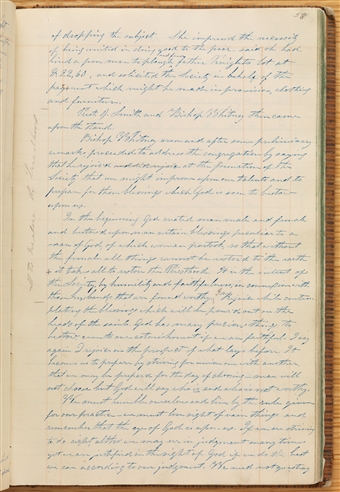 58
of dropping the subject She impressed the necessity
of being united in doing good to the poor. said she had
hired a poor man to plough & fence father Knights lot at
$ 22,60, and solicited the Society in behalf of the
payment which might be made in provisions, clothing
and furniture.
Prest. J. Smith and Bishop Whitney then came
upon the stand.
Bishop Whitney arose and after some preliminary
remarks proceeded to address the congregation by saying
that he rejoiced at the formation of the
Society that we might improve upon our talents and to
prepare for those blessings which God is soon to bestow
upon us.
In the beginning God created man male and female
and bestow'd upon man certain blessings peculiar to a
man of God, of which woman partook, so that without
the female all things cannot be restor'd to the earth
it takes all to restore the Priesthood. It is the intent of
the Society, by humility and faithfulness, in connexion with
those husbands that are found worthy. Rejoice while contem-
plating the blessings which will be pour'd out on the
heads of the saints. God has many precious things to
bestow even to our astonishment if we are faithful. I say
again I rejoice in the prospect of what lays before. It
becomes us to prepare by striving for union one with another
that we may be prepared for the day of choosing man will
not choose but God will say who is and who is not worthy.
We must humble ourselves and live by the rules given
for our practice—we must lose sight of vain things and
remember that the eye of God is upon us. If we are striving
to do right altho' we may err in judgment many times
yet we are justified in the sight of God if we do the best
we can according to our judgment.
all to restore the Priesthood